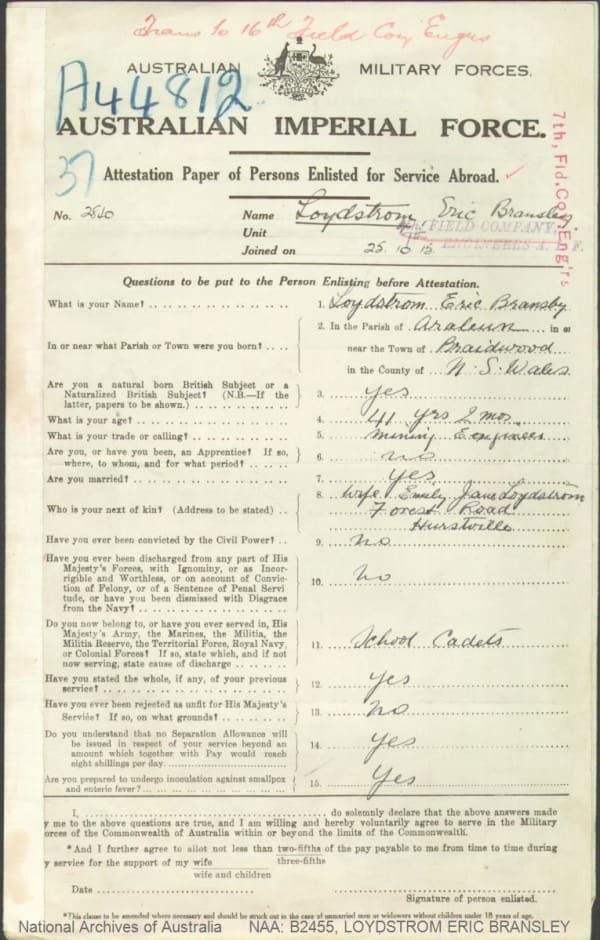 Trans to 16th Field Coy Engrs
AUSTRALIAN MILITARY FORCES.
A44812
AUSTRALIAN IMPERIAL FORCE.
37
Attestation Paper of Persons Enlisted for Service Abroad.
7th, Fld. Coy. Eng'rs
No. Name Loydstrom, Eric Bransley
Unit FIELD COMPANY,
ENGINEERS A. I. F.
Joined on 25.10.15
Questions to be put to the Person Enlisting before Attestation.
What is your Name? 1. Loydstrom Eric Bransby
In or near what Parish or Town were you born? 2. In the Parish of Araluen in or
near the Town of Braidwood
in the County of N. S. Wales
Are you a natural born British Subject or a
Naturalized British Subject? (N.B.—If the
latter, papers to be shown.) 3. yes
What is your age? 4. 41 yrs 2 mos.
What is your trade or calling? 5. Mining Engineer
Are you, or have you been, an Apprentice? If so,
where, to whom, and for what period? 6. no
Are you married? 7. yes
Who is your next of kin? (Address to be stated) 8. Wife Emily Jane Loydstrom
Forest Road
Hurstville
Have you ever been convicted by the Civil Power? 9. No
Have you ever been discharged from any part of His
Majesty's Forces, with Ignominy, or as Incor-
rigible and Worthless, or on account of Convic-
tion of Felony, or of a Sentence of Penal Servi-
tude, or have you been dismissed with Disgrace
from the Navy? 10. No
Do you now belong to, or have you ever served in, His
Majesty's Army, the Marines, the Militia, the
Militia Reserve, the Territorial Force, Royal Navy,
or Colonial Forces? If so, state which, and if not
now serving, state cause of discharge 11. School Cadets
Have you stated the whole, if any, of your previous
service? 12. yes
Have you ever been rejected as unfit for His Majesty's
Service? If so, on what grounds? 13. no
Do you understand that no Separation Allowance will
be issued in respect of your service beyond an
amount which together with Pay would reach
eight shillings per day 14. yes
Are you prepared to undergo inoculation against smallpox
and enteric fever? 15. Yes
I, do solemnly declare that the above answers made
y me to the above questions are true, and I am willing and hereby voluntarily agree to serve in the Military
orces of the Commonwealth of Australia within or beyond the limits of the Commonwealth.
*And I further agree to allot not less than two-fifths of the pay payable to me from time to time during
three-fifths
y service for the support of my wife
wife and children
Date
Signature of person enlisted.
*This clause to be amended where necessary and should be struck out in the case of unmarried men or widowers without children under 18 years of age.
National Archives of Australia NAA: B2455, LOYDSTROM ERIC BRANSLEY